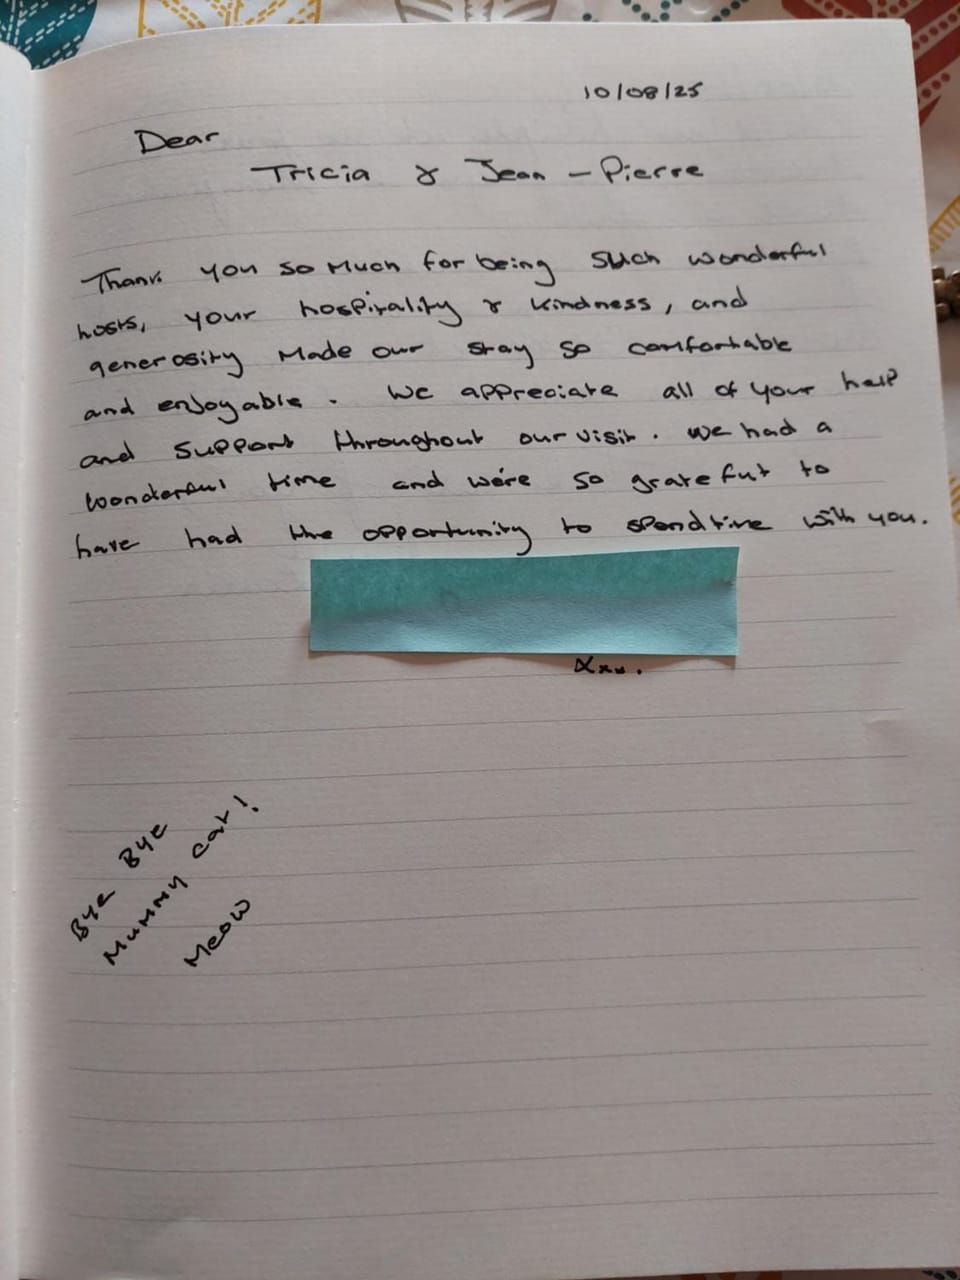 10/08/25
Dear
Tricia & Jean - Pierre
Thank you so much for being such wonderful
hosts, your hospitality & kindness, and
generosity made our stay so comfortable
and enjoyable. We appreciate all of your help
and support throughout our visit. We had a
wonderful time and we're so grateful to
have had the opportunity to spend time with you.
xxx.
Bye Bye
Mummy cat!
Meow